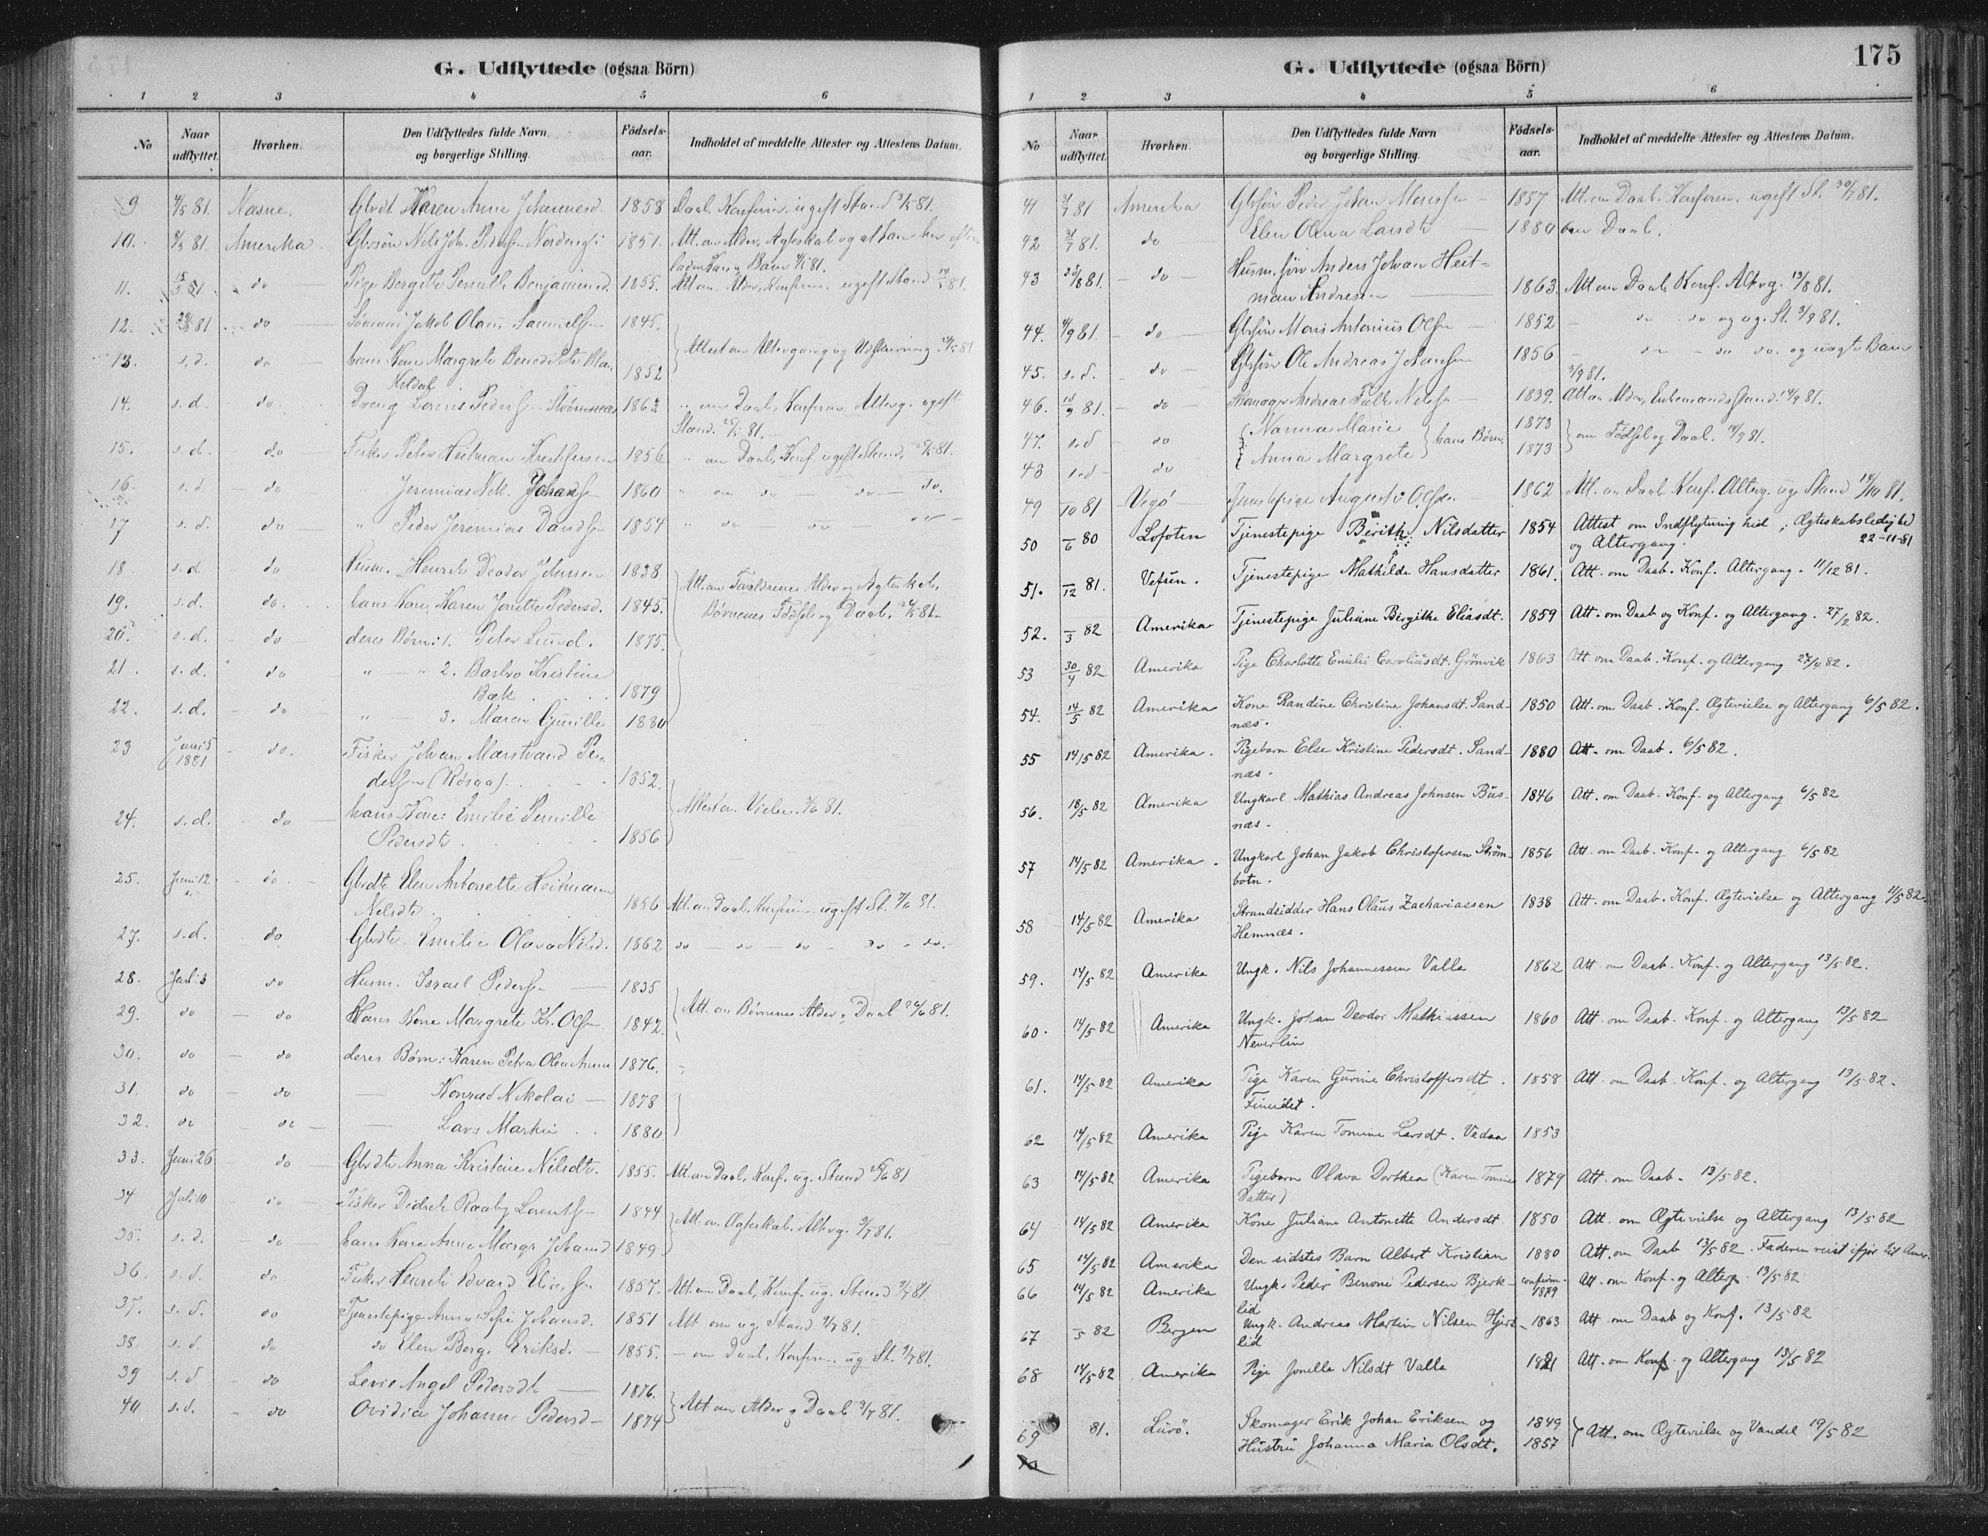 G. Udflyttede (ogsaa Börn)
1 2 3 4 5 6
No Naar udflyttet. Hvorhen. Den Udflyttedes fulde Navn og borgerlige Stilling. Födsels-aar. Indholdet af meddelte Attester og Attestens Datum.
9 81. Næsne. Glbdt Karen Anne Johannesd. 1858 Daab, Konfirm. ugift Stand 81.
10. 81 Amerika. Gbrsön Nils Joh. Peders. 1851. Att. om Alder, Ægteskab og at han har
Barn 81.
11. 81 do Pige Bergitte Pernille Benjaminsd 1855. Att. om Alder, Konfirm. ugift Stand 81.
12. 81 do Jakob Olaus Samuels. 1845.
13. s.d. do hans Kone Margrete 1852 Attest om Altergang og Udskrivning 81
14. s.d. do Dreng Lorens Peders. Strömsnæs 1862 " om Daab, Konfirm. Alterg. ugift
Stand. 81.
15. s.d. do Fisker Peter Heitman Kristensen 1856 " om Daab, Konf. ugift Stand. 81.
16. s.d. do Jeremias Nik. Johans. 1860 " om do do do.
17 s.d. do " Peder Jeremias Davids. 1854 " do do do
18. s.d. do Husm. Henrik Deodor Johnsen 1838
19. s.d. do. hans Kone, Karen Jonette Pedersd. 1845. Att. om Forældrenes Alder og Ægteskab,
Børnenes Födsel og Daab. 81.
20. s.d. do deres Børn: 1. Peter Lund. 1875.
21. s.d. do " " 2. Barbro Kristine
Bæk 1879
22. s.d. do " 3. Maren Gunille 1880
23 Juni 5 1881 do. Fisker Johan Marstrand Pe-
dersen (Røsaa). 1852.
24. s.d. do hans Kone: Emilie Pernille
Pedersdt. 1856 Attest om Vielse. 81.
25. Juni 12 do Gbrdt Elen Antonette Heitmann
Nilsdt. 1856 Att. om Daab, Konfirm. ugift St. 81.
27. s.d. do Gbrdt. Emilie Olava Nilsd. 1862 do do do do do.
28. Juli 3 do Husm. Israel Peders. 1835
29. do do Hans Kone Margrete Kr. Ols. 1842. Att. om Børnenes Alder og Daab 81.
30. do do deres Børn: Karen Petra Olea Anna 1876.
31. do do Konrad Nikolai 1878
32. do do Lars Martin 1880
33. Juni 26 do Gbrdt. Anna Kristine Nilsdt. 1855. Att. om Daab, Konf. ug. Stand 81
34 Juli 10 do Fisker Didrik Raaby Lorents. 1844
35. s.d. do hans Kone Anna Margr Johansd 1849. Att. om Ægteskab. Altvg. 81.
36. s.d. do Fisker Henrik Edvard Elias. 1857. Att. om Daab, Konf. ug. Stand 81.
37. s.d. do Tjenestepige Anna Sofie Johansd. 1851 Att om ug. Stand 81.
38. s.d. do do Elen Berg. Eriksd. 1855. om Daab, Konfirm. ug. St. 81.
39 s.d do Angel Pedersdt 1876.
40 s.d. do Ovidia Johanne Pedersd 1874 Att om Alder og Daab 81.
G. Udflyttede (ogsaa Börn) 175
1 2 3 4 5 6
No Naar udflyttet. Hvorhen. Den Udflyttedes fulde Navn og borgerlige Stilling. Födsels-aar. Indholdet af meddelte Attester og Attestens Datum.
41 81 Amerika Gbrsön Peder Johan Mons. 1857 Att. om Daab. Konfirm. ugift St. 81.
42 81. do Elen Olena Larsdt 1880 om Daab.
43 81. do Husm. sön Anders Johan Heit-
man Andresen 1863. Att om Daab, Konf. Altvg. 13/8 81.
44. 81. do Gbrsön Mons Antonius Ols. 1852 do do og ug. St. 3/9 81.
45. s.d. do Gbrsön Ole Andreas Johans. 1856 do do do. og Barn
3/9 81.
46. 81. do Skomager Andreas Falk Nils. 1839. Att om Alder, Enkemandsstand. 81.
47. s.d do Nanna Marie 1873
48 s.d do Anna Margrete hans Børn, 1873 om Födsel og Daab. 81.
49 /10 81 Vegö Tjenestepige Augusta Ols. 1862 Att. om Daab. Konf. Alterg. ug. Stand 81.
50 /6 80 Lofoten Tjenestepige Berith Nilsdatter 1854 Attest om Indflytning hid; Ægteskabsledighed
og Altergang. 22-11-81
51. /12 81. Vefsen. Tjenestepige Mathilde Hansdatter 1861. Att. om Daab. Konf. Altergang. 11/12 81.
52. /3 82 Amerika Tjenestepige Juliane Bergithe Eliasdt. 1859 Att. om Daab og Konf. og Altergang. 27/2 82.
53 30/4 82 Amerika Pige Charlotte Emilie Caroliusdt. Grönvik 1863 Att. om Daab. Konf. og Altergang 27/4 82.
54. 14/5 82 Amerika Kone Randine Christine Johansdt. Sand-
næs. 1850 Att. om Daab. Konf. Ægtevielse og Altergang 6/5 82.
55 14/5 82 Amerika. Pigebarn Else Kristine Pedersdt. Sand-
næs. 1880 Att. om Daab. 6/5 82.
56. 18/5 82 Amerika Ungkarl Mathias Andreas Johnsen Bus-
næs. 1846 Att. om Daab. Konf. og Altergang 6/5 82
57 14/5 82 Amerika. Ungkarl Johan Jakob Christofersen Ström-
botn. 1856 Att. om Daab. Konf. og Altergang 6/5 82
58 14/5 82 Amerika Strandsidder Hans Olaus Zachariassen
Hemnæs. 1838 Att. om Daab. Konf. Ægtevielse og Altergang 11/5 82.
59. 14/5 82 Amerika Ungk. Nils Johannessen Valla 1862 Att om Daab. Konf. og Altergang 13/5 82.
60. 14/5 82 Amerika Ungk. Johan Deodor Mathiassen
Neverlin 1860 Att om Daab. Konf. og Altergang 13/5 82
61. 14/5 82 Amerika Pige Karen Gurine Christoffersdt.
Finnidet. 1858 Att. om Daab. Konf. og Altergang 13/5 82.
62 14/5 82 Amerika Pige Karen Tomine Larsdt. Vedaa 1853
63 14/5 82 Amerika Pigebarn Olava Dorthea (Karen Tomine
Datter) 1879 Att. om Daab. 13/5 82.
64 14/5 82 Amerika Kone Juliane Antonette Andersdt. 1850 Att. om Ægtevielse og Altergang 13/5 82
65 14/5 82 Amerika Den sidstes Barn Albert Kristian 1880 Att. om Daab 13/5 82. Faderen reist ifjor til Amer.
66 14/5 82 Amerika Ungk. Peder Benoni Pedersen Bjerk-
lid confirm. 1879 Att. om Konf. og Alterg. 13/5 82
67 /5 82 Bergen Ungk. Andreas Martin Nilsen Hjert-
lid 1863 Att. om Daab og Konf. 13/5 82
68 14/5 82 Amerika Pige Jonille Nilsdt Valla 1821 Att. om Konf. og Altergang 13/5 82
69 81. Lurö. Skomager Erik Johan Eriksen og 1849
Hustru Johanna Maria Olsdt. 1857 Att. om Ægtevielse og Vandel 19/5 82
70